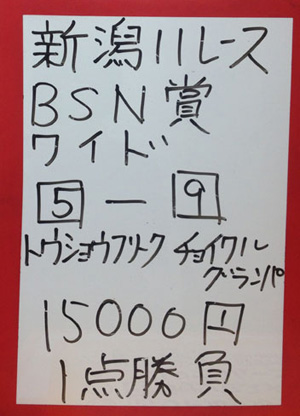 新潟11レース
BSN賞
ワイド
5 — 9
トウショウフリーク チョイワル
グランパ
15000円
1点勝負